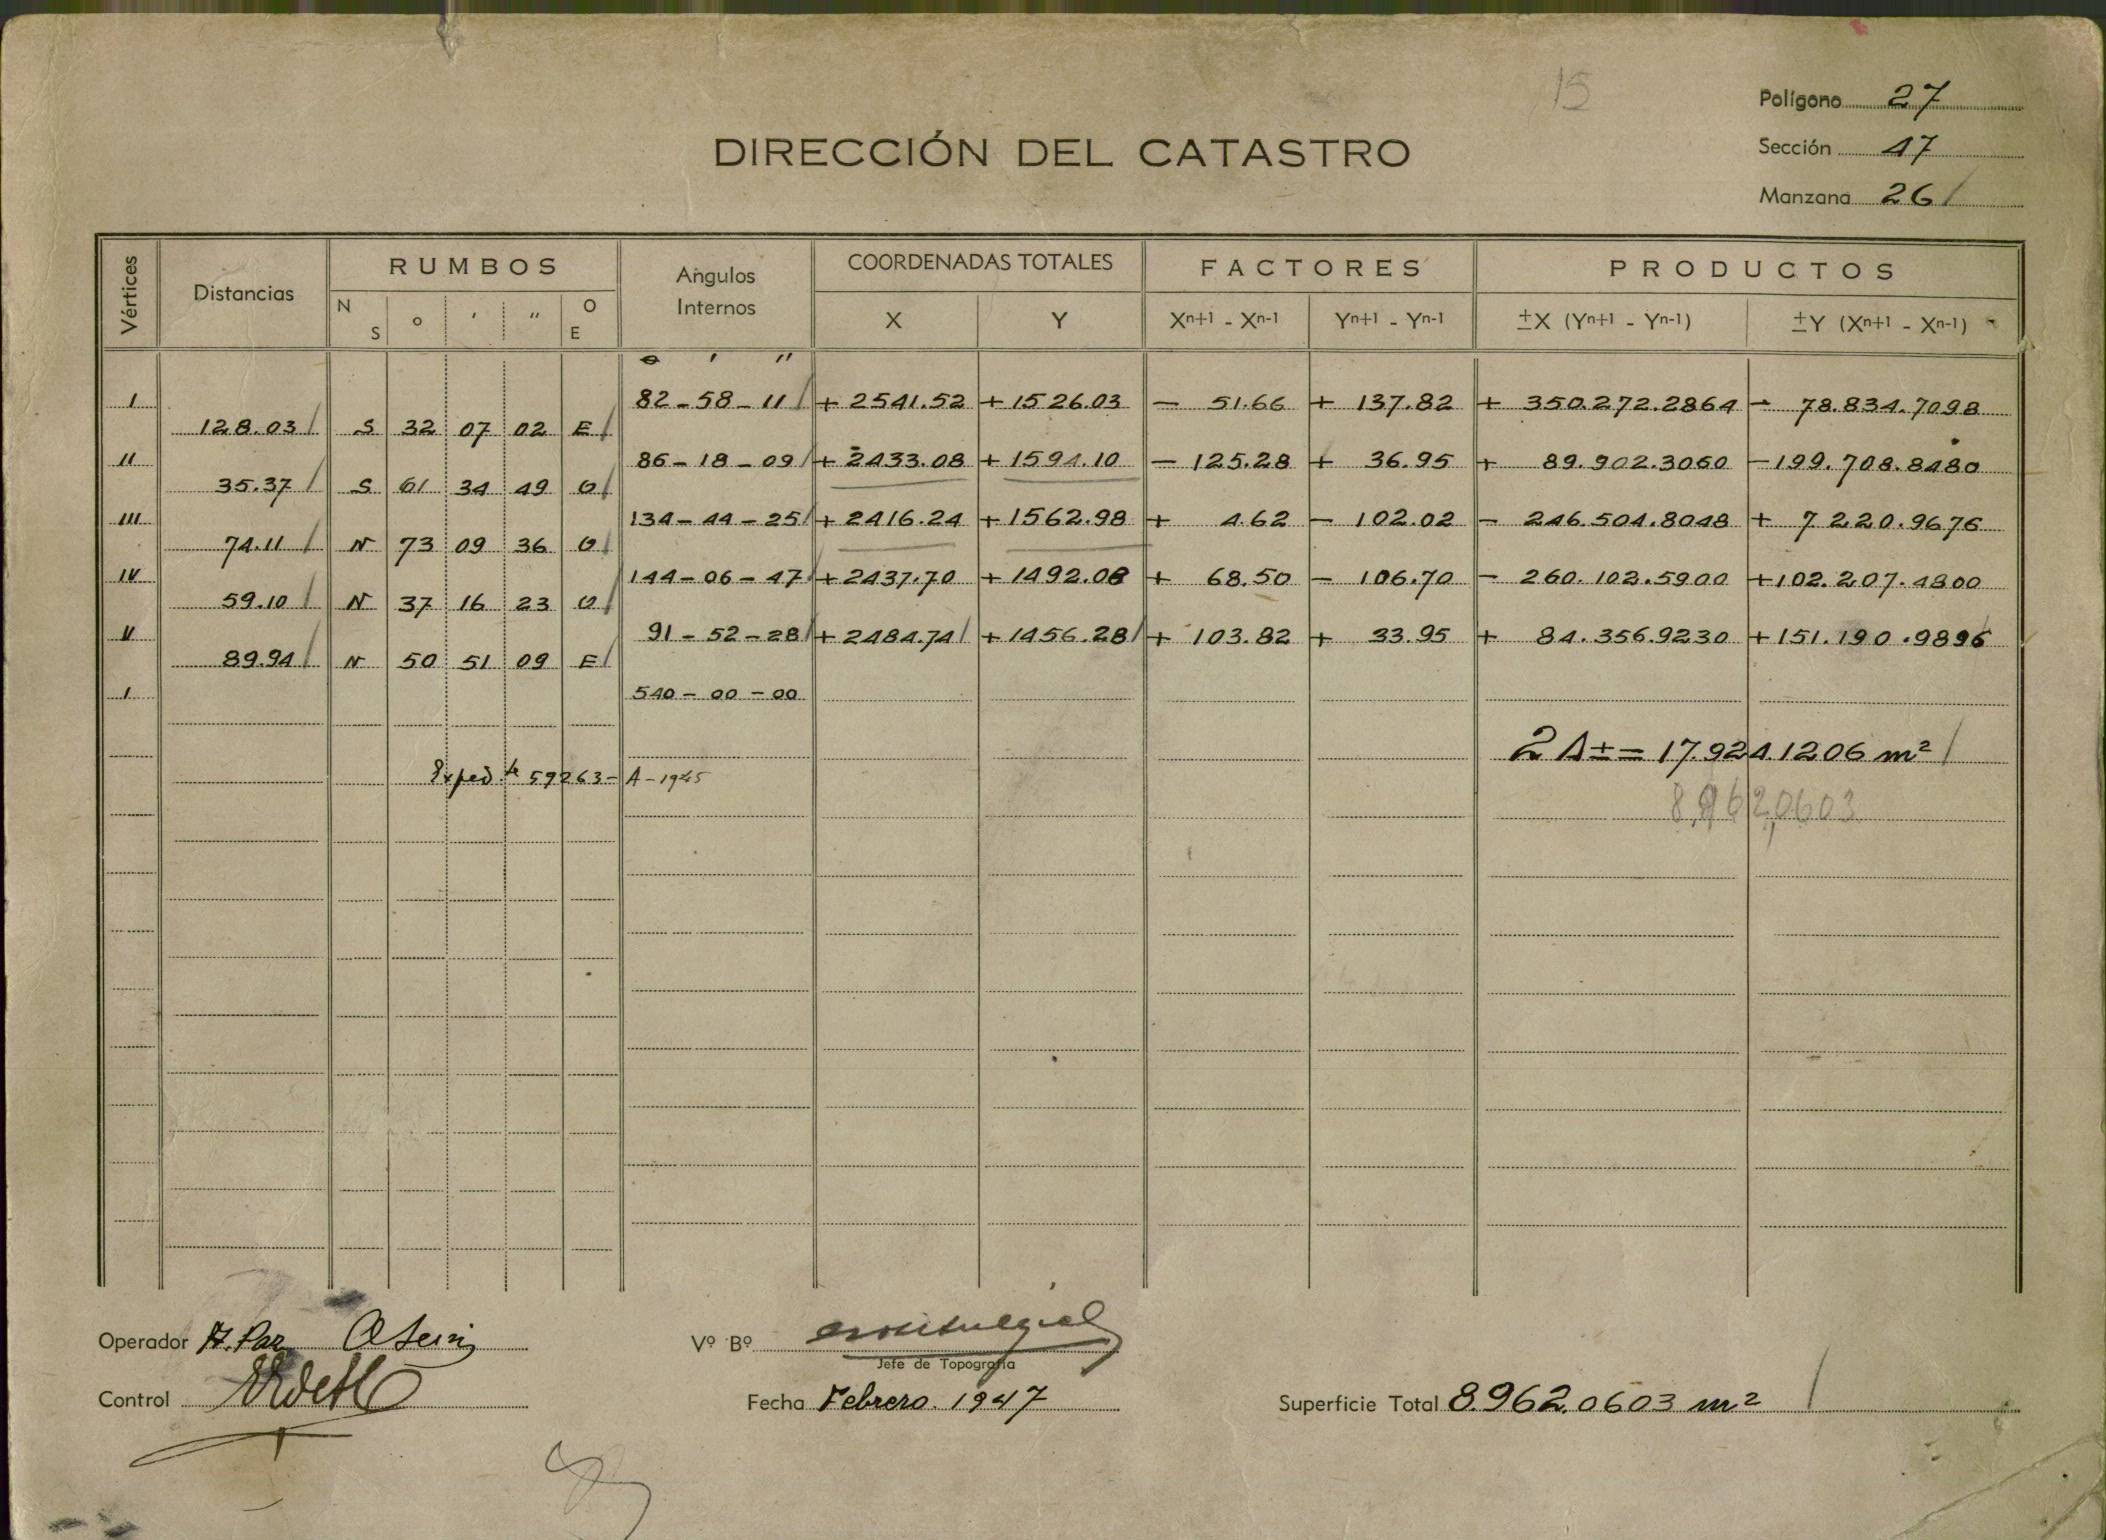 15
Polígono 27
DIRECCIÓN DEL CATASTRO
Sección 47
Manzana 26
Vértices Distancias RUMBOS Angulos Internos COORDENADAS TOTALES FACTORES PRODUCTOS
N S o ' '' O E X Y Xn+1 - Xn-1 Yn+1 - Yn-1 ±X (Yn+1 - Yn-1) ±Y (Xn+1 - Xn-1)
o ' ''
I 82-58-11 + 2541.52 + 1526.03 - 51.66 + 137.82 + 350.272.2864 - 78.834.7098
128.03 S 32 07 02 E
II 86-18-09 + 2433.08 + 1594.10 - 125.28 + 36.95 + 89.902.3060 - 199.708.8480
35.37 S 61 34 49 O
III 134-44-25 + 2416.24 + 1562.98 + 4.62 - 102.02 - 246.504.8048 + 7 220.9676
74.11 N 73 09 36 O
IV 144-06-47 + 2437.70 + 1492.08 + 68.50 - 106.70 - 260.102.5900 + 102.207.4800
59.10 N 37 16 23 O
V 91-52-28 + 2484.74 + 1456.28 + 103.82 + 33.95 + 84.356.9230 + 151.190.9896
89.94 N 50 51 09 E
I 540-00-00
2 A ± = 17.924.1206 m²
Exped.te 59263-A-1945
8.962,0603
Operador A. Paz
Vº Bº
Jefe de Topografía
Control
Fecha Febrero. 1947
Superficie Total 8.962.0603 m²